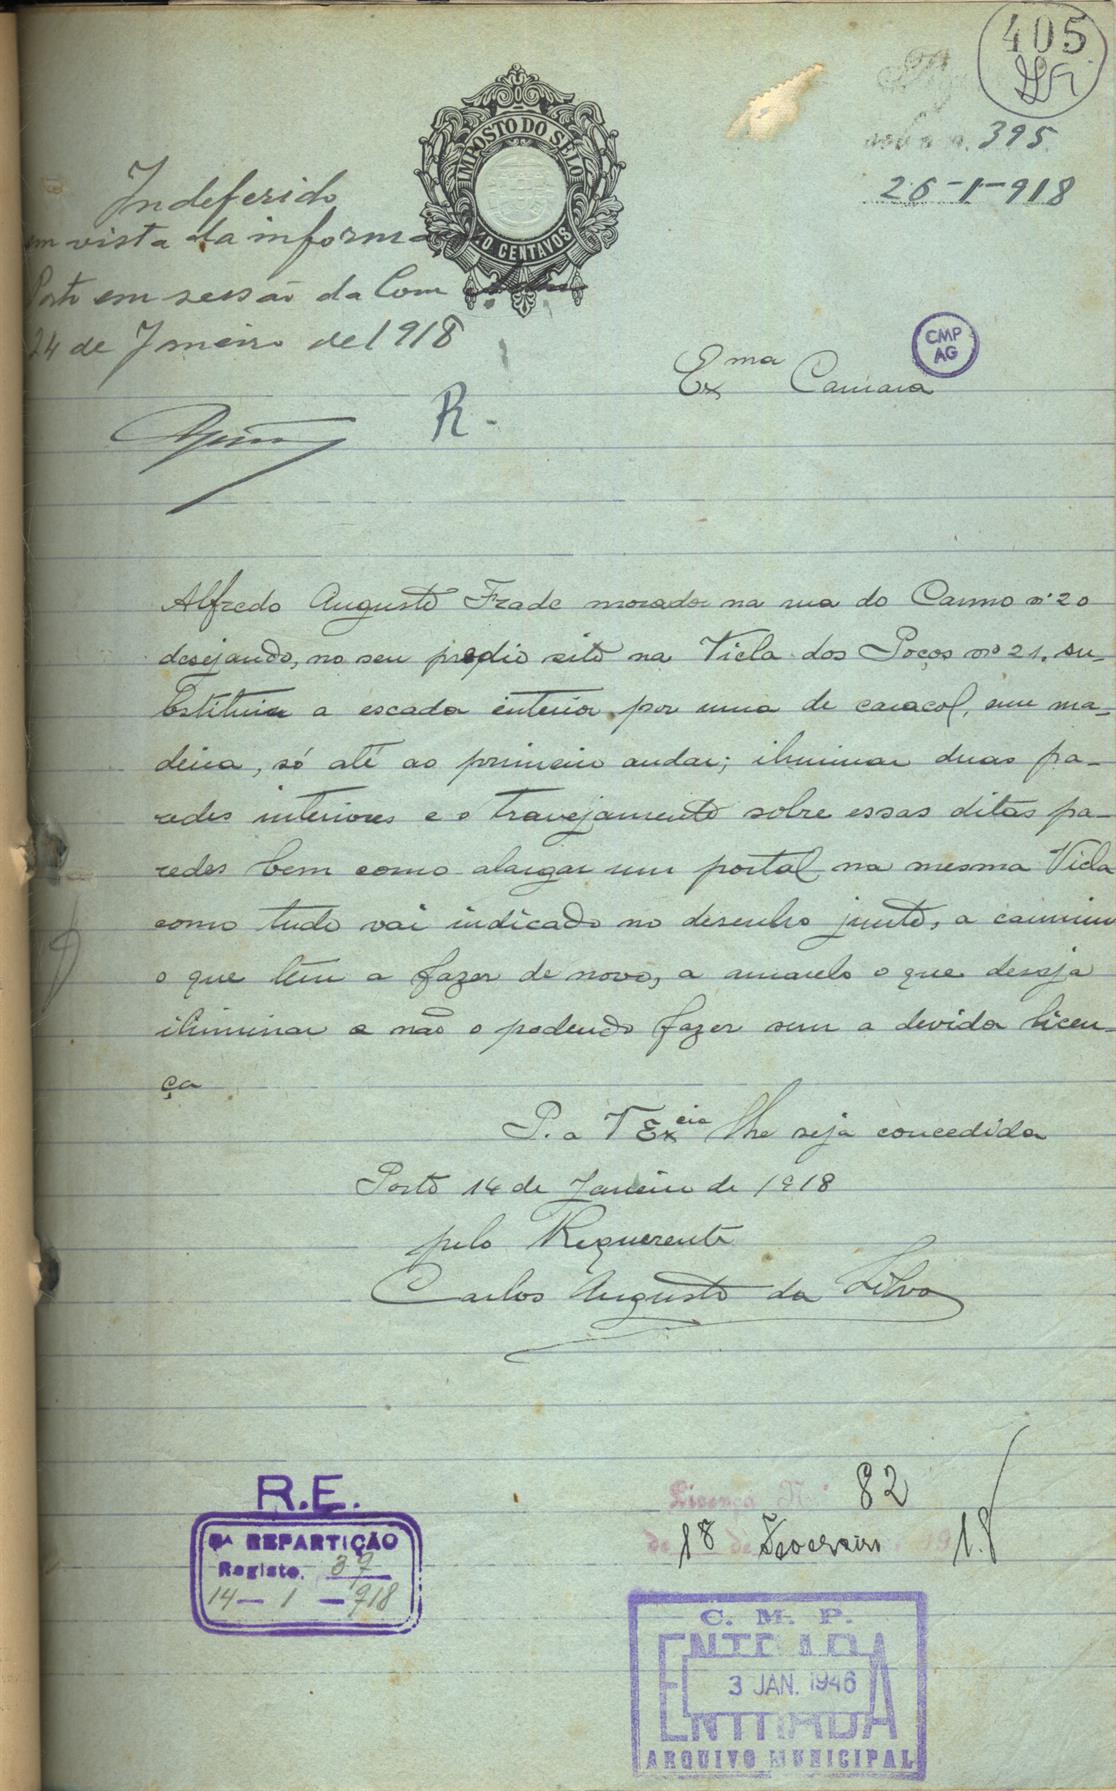 405
395
26-1-918
IMPOSTO DO SELO
10 CENTAVOS
Indeferido
em vista da informa
Porto em sessão da Com
24 de Janeiro de 1918
CMP
AG
Exma Camara
R.
Alfredo Augusto Frade morador na rua do Carmo nº 20
desejando, no seu predio sito na Viela dos Poços nº 21, su-
bstituir a escada interior por uma de caracol, em ma-
deira, só até ao primeiro andar; iliminar duas pa-
redes interiores e o travejamento sobre essas ditas pa-
redes bem como alargar um portal na mesma Viela
como tudo vai indicado no desenho junto, a carmim
o que tem a fazer de novo, a amarelo o que deseja
iliminar e não o podendo fazer sem a devida licen-
ça
P. a V Excia lhe seja concedida
Porto 14 de Janeiro de 1918
pelo Requerente
Carlos Augusto da Silva
R.E.
REPARTIÇÃO
Registo. 37
14 - 1 - 918
Licença N.º 82
de 18 de Fevereiro 1918
C. M. P.
ENTRADA
3 JAN. 1946
ENTRADA
ARQUIVO MUNICIPAL